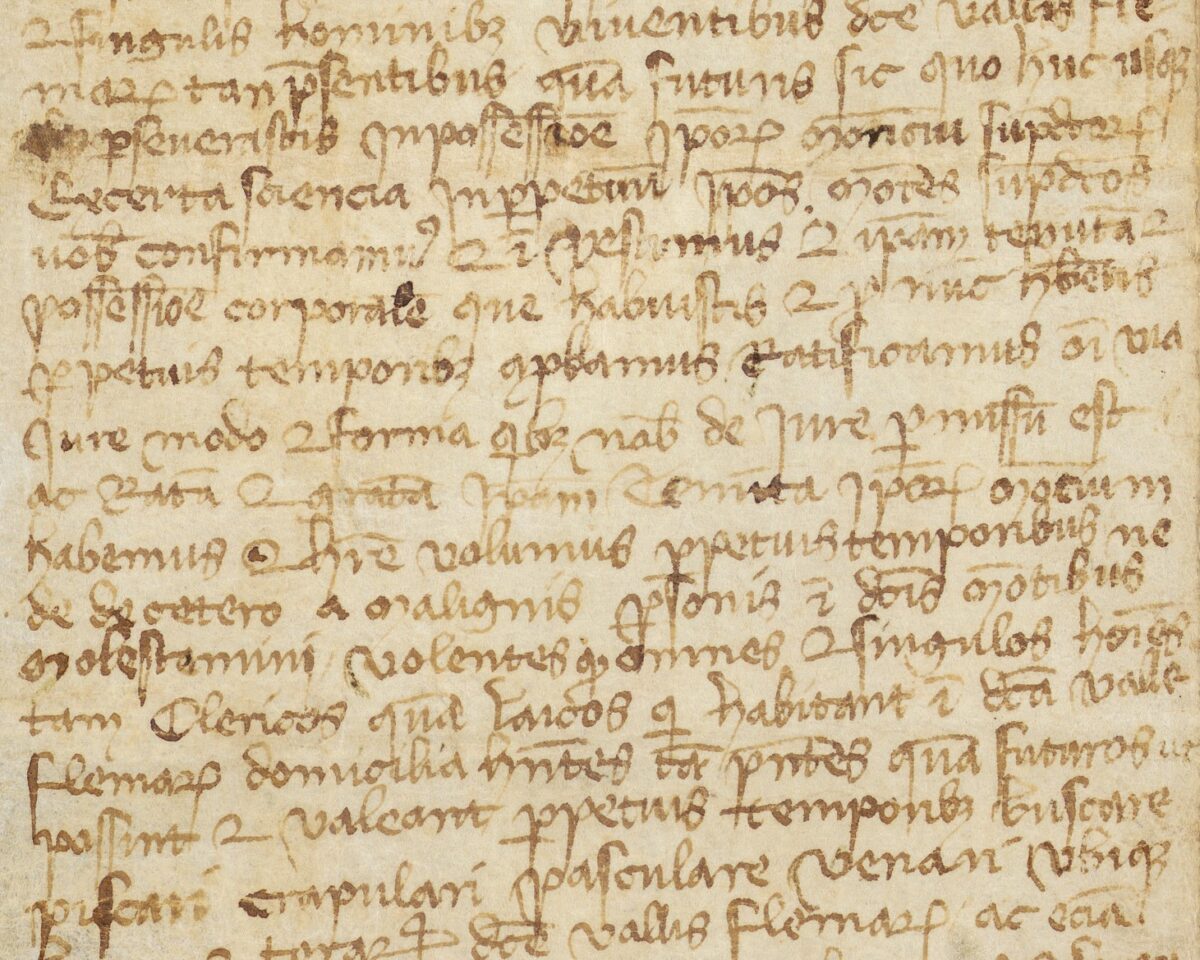 & singulis hominibꝫ viventibus dc̄e vallis fle-
maꝝ tan pn̄sentibus quā futuris sic quo huc usqꝫ
ꝑseverastis in possessiōe ip̄oꝝ mōnciu sup̄dcōꝝ
Ex certa sciencia inꝑpetuū ip̄os mōtes sup̄dc̄os
vob̄ confirmamꝰ & ī vestimus & ip̄am tenutā &
possessiōē corporalē que habuistis & ꝑ nūc hēbetis
ꝑpetuis temporibꝫ apꝓbamus Ratificamus oī via
Jure modo & forma qibꝫ nob̄ de Jure ꝑmissū est
ac Ratā & gratā ip̄am Tenuta ip̄oꝝ mōcium
habemus & hr̄e volumus ꝑpetuis temporibus ne
de cetero a malignis ꝑsonis ī dc̄is mōtibus
molestamini volentes qꝫ omnes & singulos hōies
tam Clericos quā laicos qi habitant ī dc̄a valle
flemaꝝ domicilia hn̄tes tā p̄ntes quā futuros ut
possint & valeant ꝑpetuis temporibꝫ buscare
piscari crapulari pasculare venari vbiqꝫ
dc̄e vallis flemaꝝ ac eciā